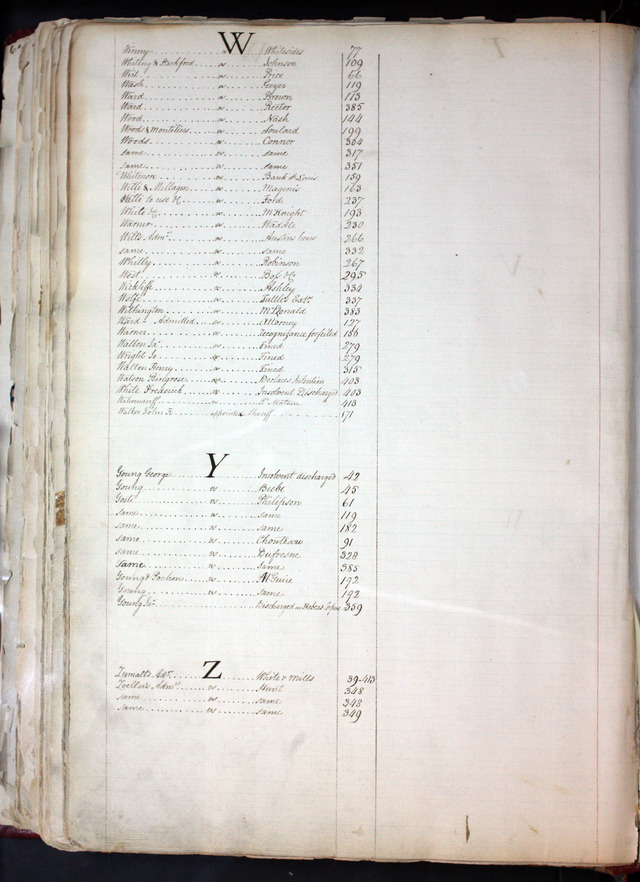 W
Winny vs Whitesides 77
Whiting & Hackford vs Johnson 109
Wirt vs Price 66
Wash vs Geyer 119
Ward vs Brown 113
Ward vs Rector 385
Wood vs Nash 144
Woods & Montilius vs Soulard 199
Woods vs Connor 304
same vs same 317
same vs same 351
Whitmore vs Bank St Louis 159
Wills & Millagin vs Magenis 163
Wills to use &c vs Ford 237
White &c vs McKnight 193
Warner vs Waddle 230
Wills Admr vs Austins heirs 266
same vs same 332
Whilly vs Robinson 267
West vs Box &c 295
Wickliffe vs Ashley 334
Wolfe vs Tuttles Extr 337
Withington vs McDonald 383
Ward Admitted vs Attorney 127
Warner vs recognizance forfeited 156
Walton Jas vs Fined 279
Wright Jo vs Fined 279
Walton Henry vs Fined 315
Watson Ringrose vs Declares Intention 403
White Frederick vs Insolvent Discharged 403
vs 413
Walker John K appointed Sheriff 171
Y
Young George Insolvent discharged 42
Young vs Beebe 45
Yosti vs Philipson 61
same vs same 119
same vs same 182
same vs Chouteau 91
same vs Dufresne 328
same vs same 385
Young & Pachon vs McGuire 192
Young vs same 192
Young Jas Discharged on Habeas Corpus 359
Z
Zumalts Adr vs White & Mills 39-413
Zoellers Admr vs Hunt 348
same vs same 348
same vs same 349